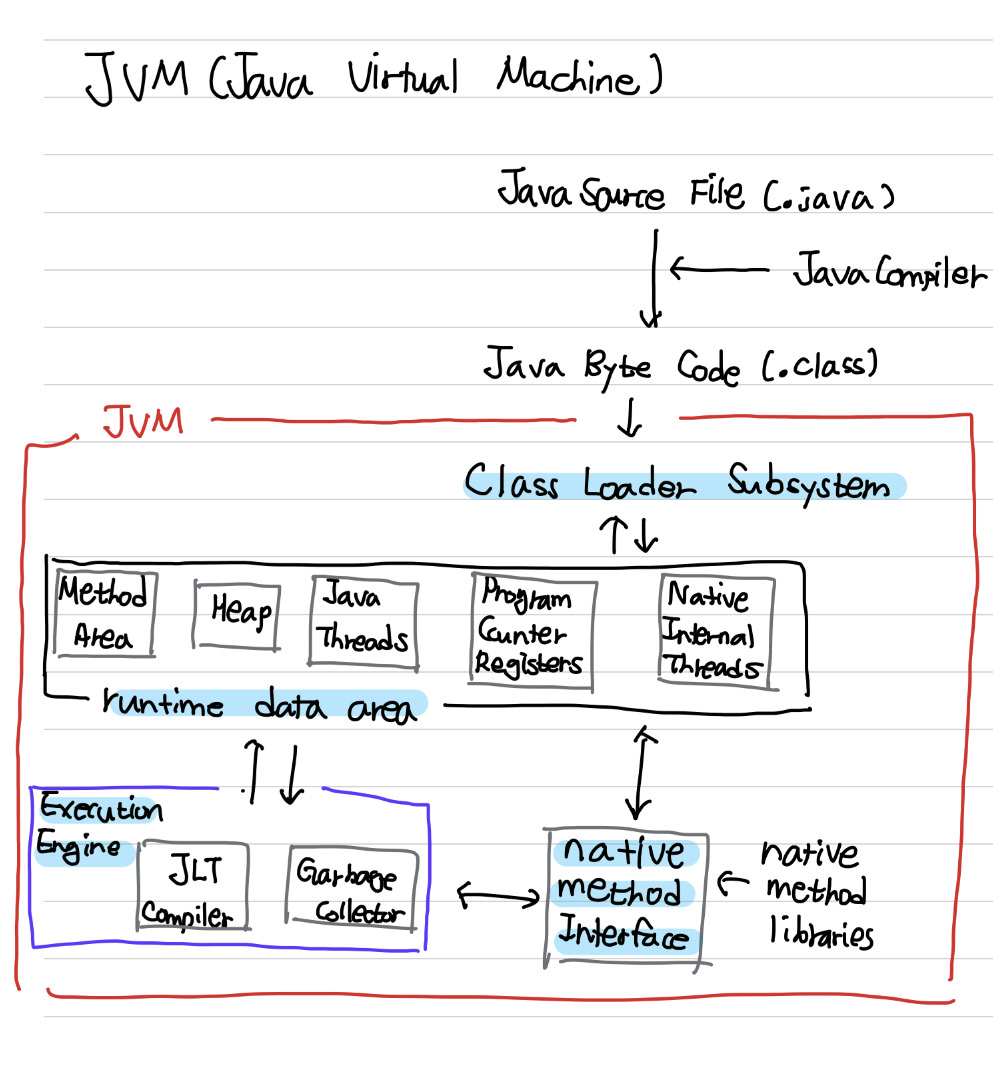 JVM (Java Virtual Machine)
Java Source File (.java)
Java Compiler
Java Byte Code (.class)
JVM
Class Loader Subsystem
Method
Area
Heap
Java
Threads
Program
Counter
Registers
Native
Internal
Threads
runtime data area
Execution
Engine
JLT
Compiler
Garbage
Collector
native
method
Interface
native
method
libraries